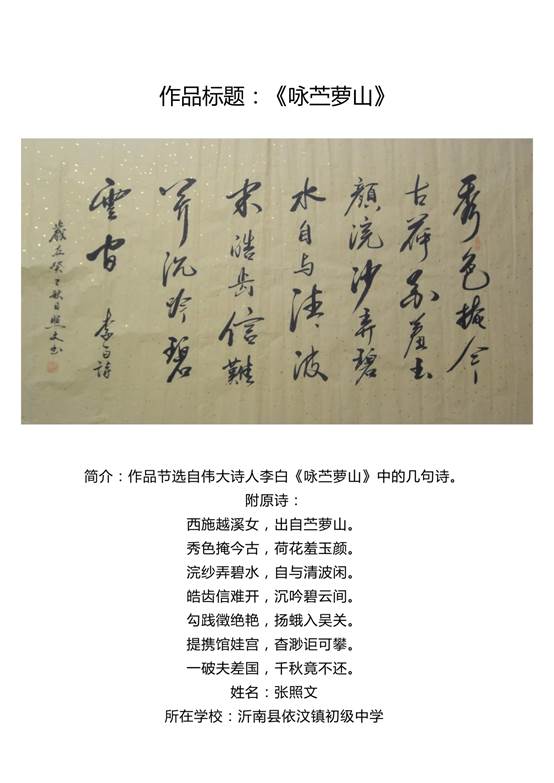 作品标题：《咏苎萝山》
秀色掩今
古荷花羞玉
顔浣沙弄碧
水自与清波
闲皓齿信難
开沉吟碧
雲间 李白詩
歲在癸巳秋日照文书
简介：作品节选自伟大诗人李白《咏苎萝山》中的几句诗。
附原诗：
西施越溪女，出自苎萝山。
秀色掩今古，荷花羞玉颜。
浣纱弄碧水，自与清波闲。
皓齿信难开，沉吟碧云间。
勾践徵绝艳，扬蛾入吴关。
提携馆娃宫，杳渺讵可攀。
一破夫差国，千秋竟不还。
姓名：张照文
所在学校：沂南县依汶镇初级中学